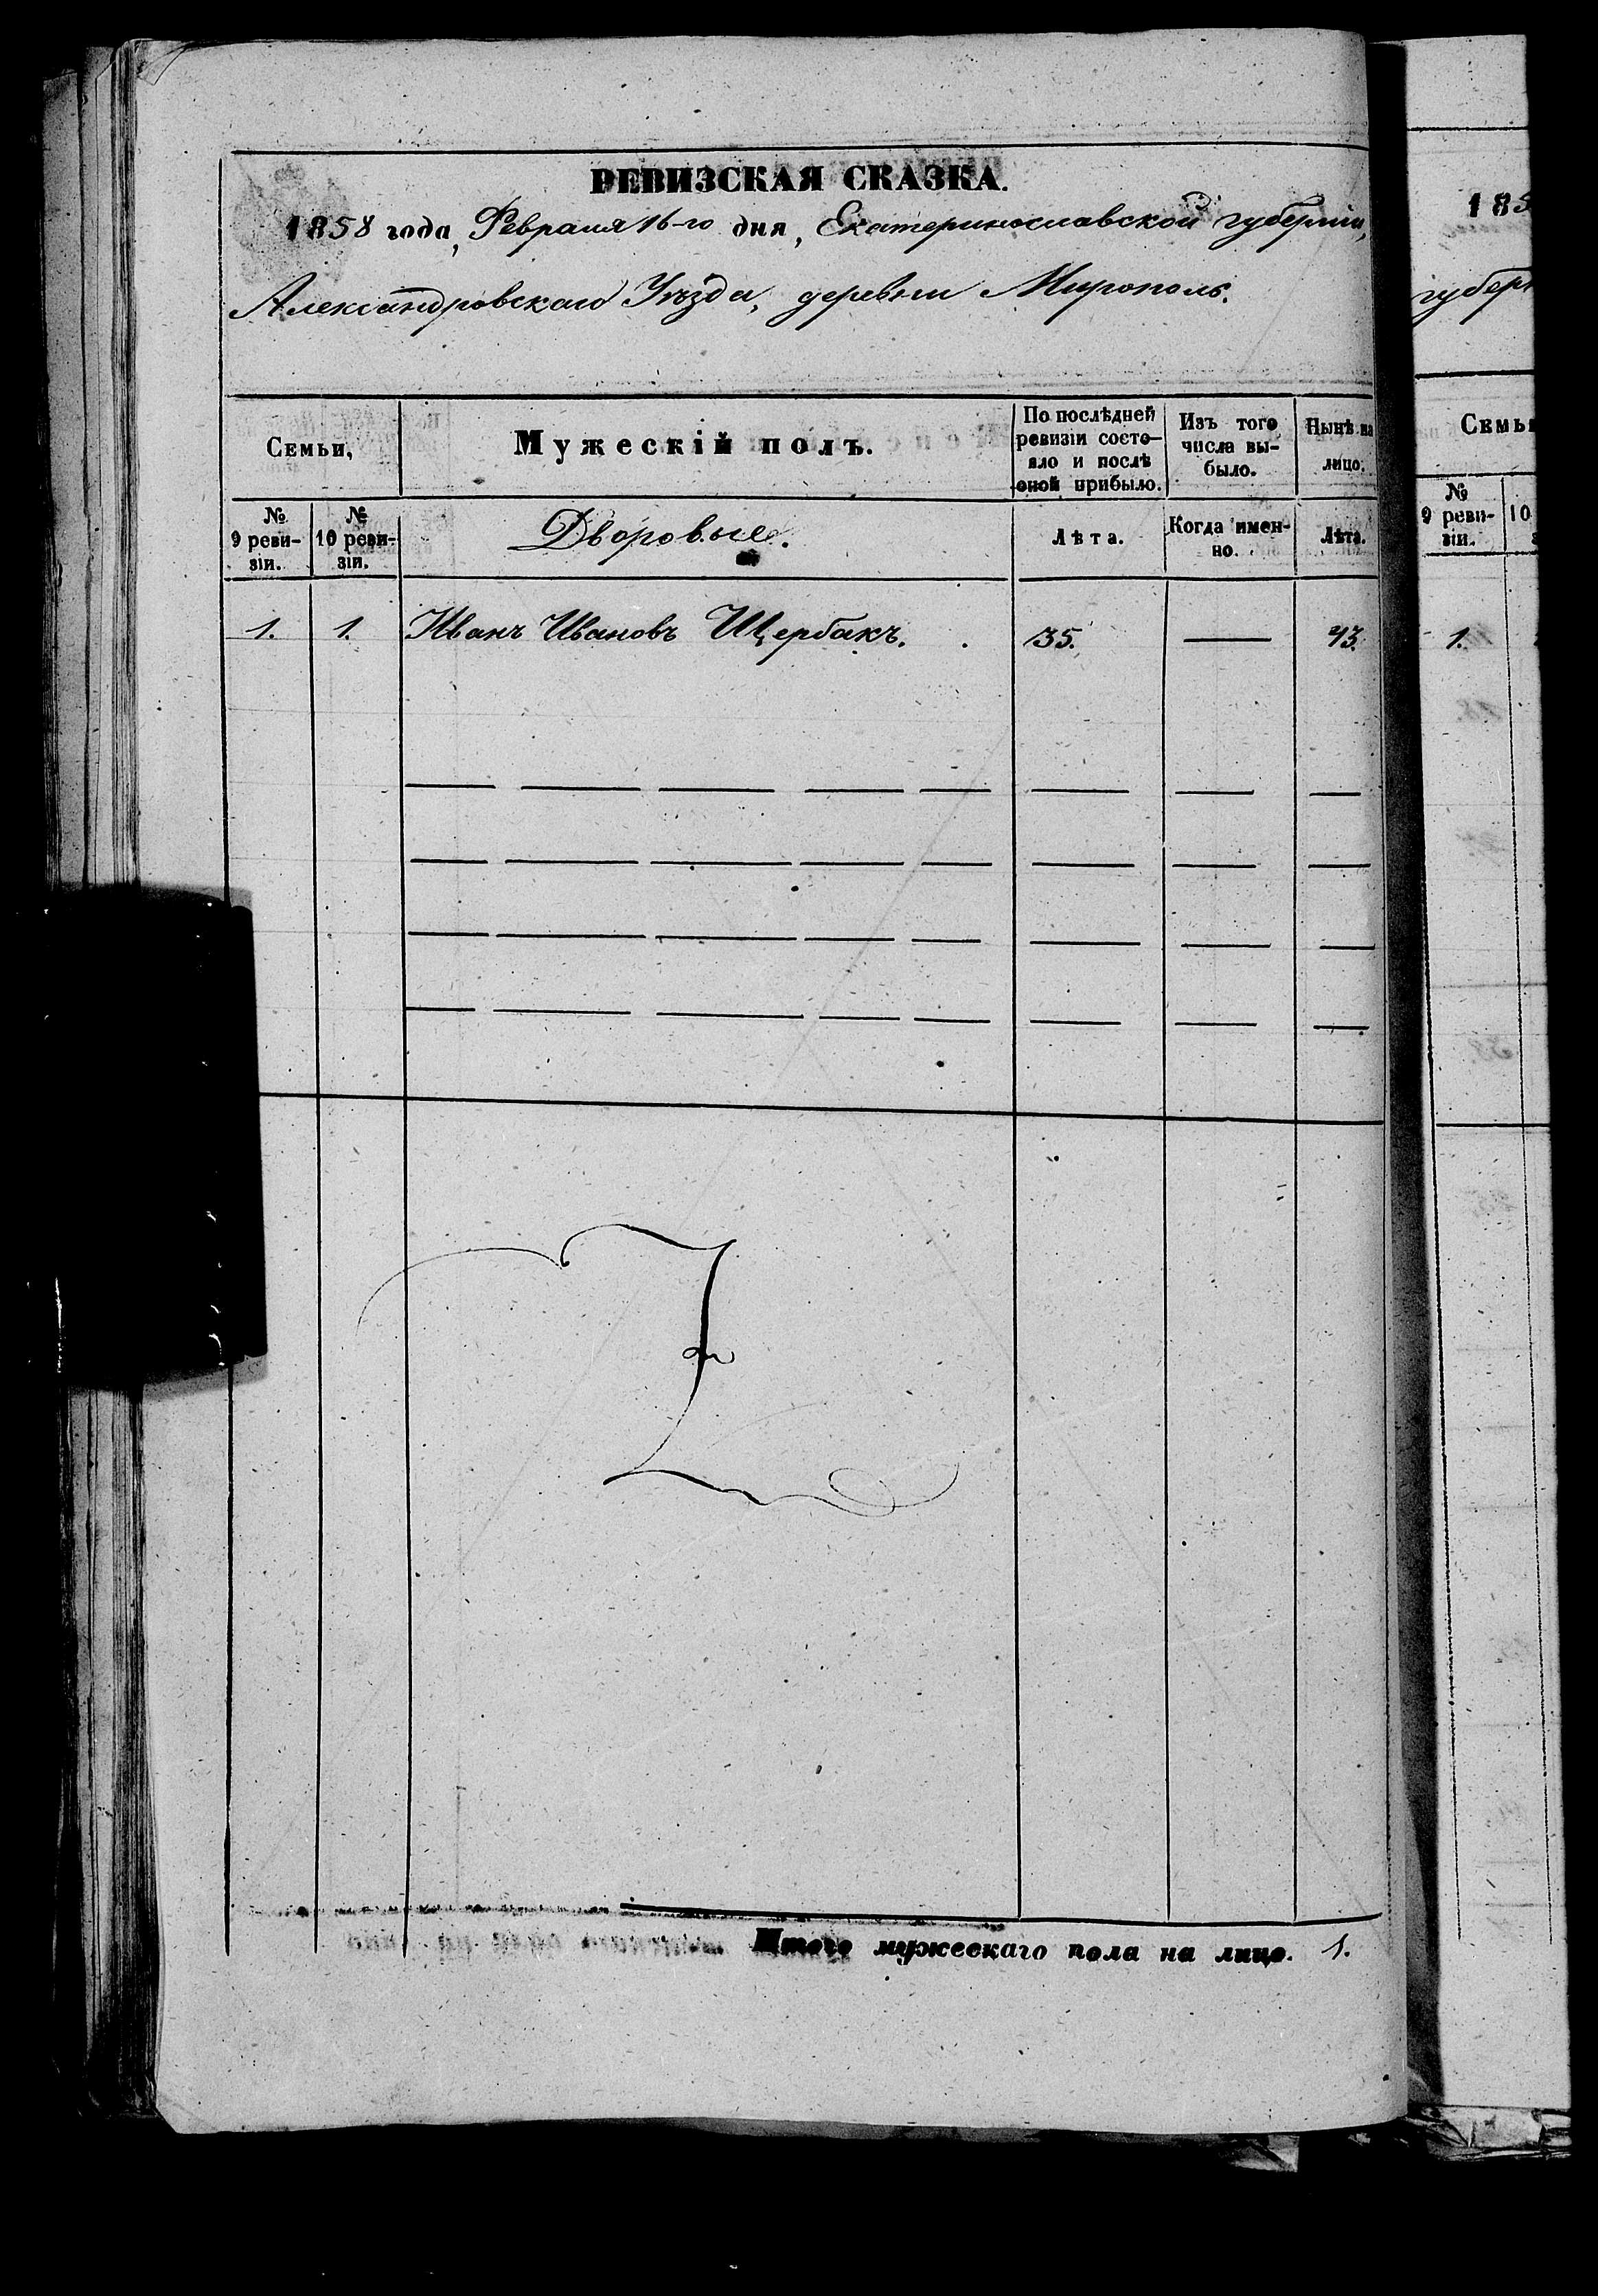 РЕВИЗСКАЯ СКАЗКА.
1858 года, Февраля 16-го дня, Екатеринославской губерніи,
Александровскаго Уѣзда, деревни Мирополь.
Семьи,
Мужескій полъ.
По послѣдней
ревизіи состо-
яло и послѣ
оной прибыло.
Изъ того
числа вы-
было.
Нынѣ на
лицо.
№
9 реви-
зіи.
№
10 реви-
зіи.
Дворовые.
Лѣта.
Когда имен-
но.
Лѣта.
1. 1. Иванъ Ивановъ Щербакъ. 35. — 43.
Итого мужескаго пола на лицо. 1.
185
губерн
Семьи
№
9 реви-
зіи.
10
1.